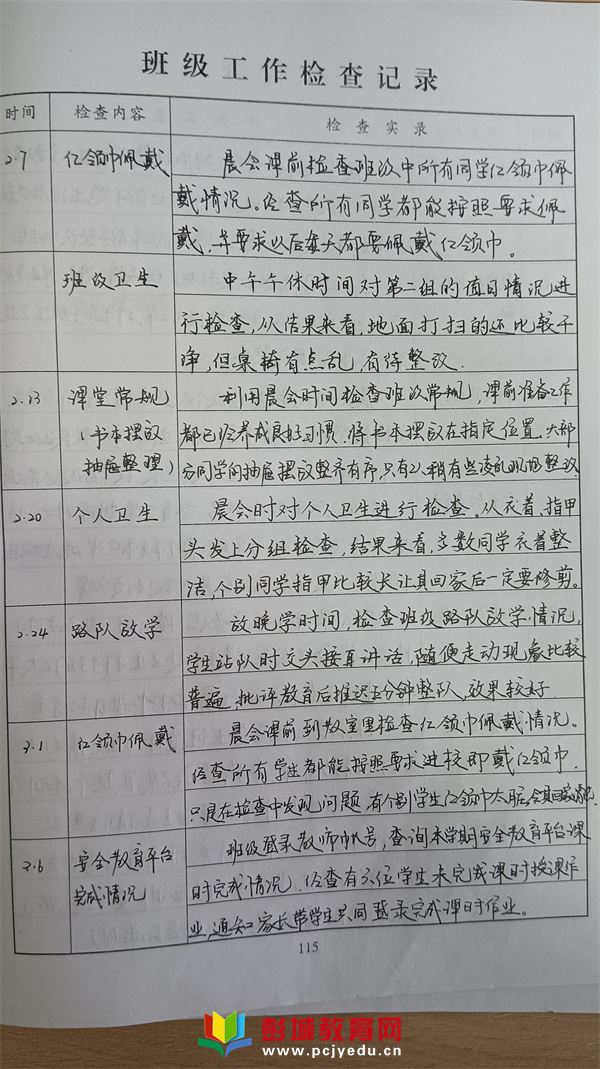 班级工作检查记录
时间 检查内容 检查实录
2.7 红领巾佩戴 晨会课前检查班级中所有同学红领巾佩
戴情况。经查所有同学都能按照要求佩
戴，并要求以后每天都要佩戴红领巾。
班级卫生 中午午休时间对第二组的值日情况进
行检查，从结果来看，地面打扫的还比较干
净，但桌椅有点乱，有待整改.
2.13 课堂常规 利用晨会时间检查班级常规，课前准备工作
（书本摆放 都已经养成良好习惯，将书本摆放在指定位置。大部
抽屉整理） 分同学的抽屉摆放整齐有序，只有2人稍有些凌乱现场整改.
2.20 个人卫生 晨会时对个人卫生进行检查。从衣着、指甲
头发上分组检查，结果来看，多数同学衣着整
洁，个别同学指甲比较长让其回家后一定要修剪。
2.24 路队放学 放晚学时间，检查班级路队放学情况，
学生站队时交头接耳讲话，随便走动现象比较
普遍，批评教育后推迟五分钟整队，效果较好.
3.1 红领巾佩戴 晨会课前到教室里检查红领巾佩戴情况。
经查所有学生都能按照要求进校即戴红领巾.
只是在检查中发现问题，有个别学生红领巾太脏，令其回家清洗.
3.6 安全教育平台 班级登录教师帐号，查询本学期安全教育平台课
完成情况 时完成情况，经查有六位学生未完成课时授课作
业，通知家长带学生共同登录完成课时作业。
115
彭城教育网
www.pcjyedu.cn